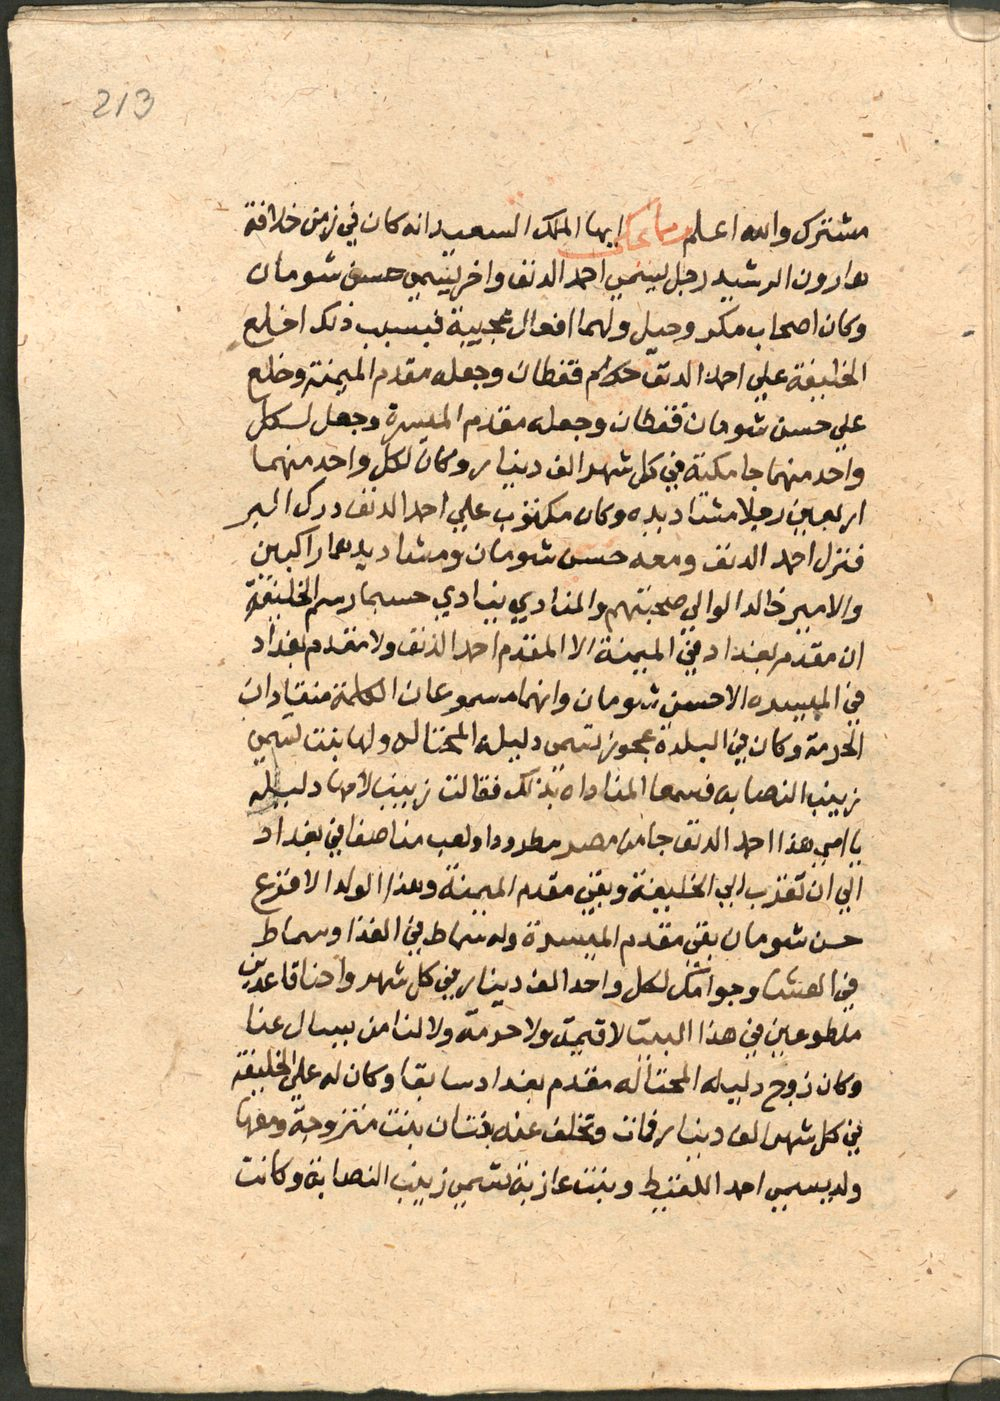 213
مشترك والله اعلم ومما يحكى ايها الملك السعيد انه كان في زمن خلافة
هارون الرشيد رجل يسمي احمد الدنف واخر يسمي حسن شومان
وكان اصحاب مكر وحيل ولهما افعال عجيبة فبسبب ذلك اخلع
الخليفة علي احمد الدنف قفطان وجعله مقدم الميمنة وخلع
علي حسن شومان قفطان وجعله مقدم الميسرة وجعل لكل
واحد منهما جامكية في كل شهر الف دينار وكان لكل واحد منهما
اربعين رجلا مشتاديده وكان مكتوب علي احمد الدنف درك البر
فنزل احمد الدنف ومعه حسن شومان ومشاديدهما راكبين
والامير خالد الوالي صحبتهم والمنادي ينادي حسما رسم الخليفة
ان مقدم بغداد في الميمنة الا المقدم احمد الدنف ولا مقدم بغداد
في الميسره الا حسن شومان وانهما مسموعان الكلمة منقادان
الحرمة وكان في البلدة عجوز تسمي دليله المحتاله ولها بنت تسمي
زينب النصابه فسمعا المناداه بذلك فقالت زينب لامها دليله
يا امي هذا احمد الدنف جا من مصر مطرودا ولعب مناصفا في بغداد
الي ان تقرب الي الخليفة وبقي مقدم الميمنة وهذا الولد الاقرع
حسن شومان بقي مقدم الميسرة وله سماط في الغدا وسماط
في العشا وجوامك لكل واحد الف دينار في كل شهر واحنا قاعدين
ملطوعين في هذا البيت لا قيمة ولا حرمة ولا لنا من يسال عنا
وكان زوج دليله المحتاله مقدم بغداد سابقا وكان له علي الخليفة
في كل شهر الف دينار فمات وتخلف عنه بنتان بنت متزوجة ومعها
ولد يسمي احمد اللقيط وبنت عازبة تسمي زينب النصابة وكانت